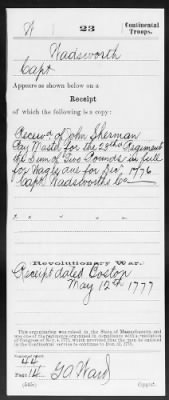 W 23 Continental Troops.
Wadsworth
Capt
Appears as shown below on a
Receipt
of which the following is a copy:
Receivd of John Sherman
Pay Master for the 23d Regiment
the Sum of Two Pounds in full
for Wages due for Nov 1776
Capt. Wadsworths Co
Revolutionary War.
Receipt dated Boston
May 12th 1777
This organization was raised in the State of Massachusetts and
was one of the regiments organized in compliance with a resolution
of Congress of Nov. 4, 1775, which provided that the men be enlisted
in the Continental service to continue to Dec. 31, 1776.
44
Page 12 G O Ward
Copyist.